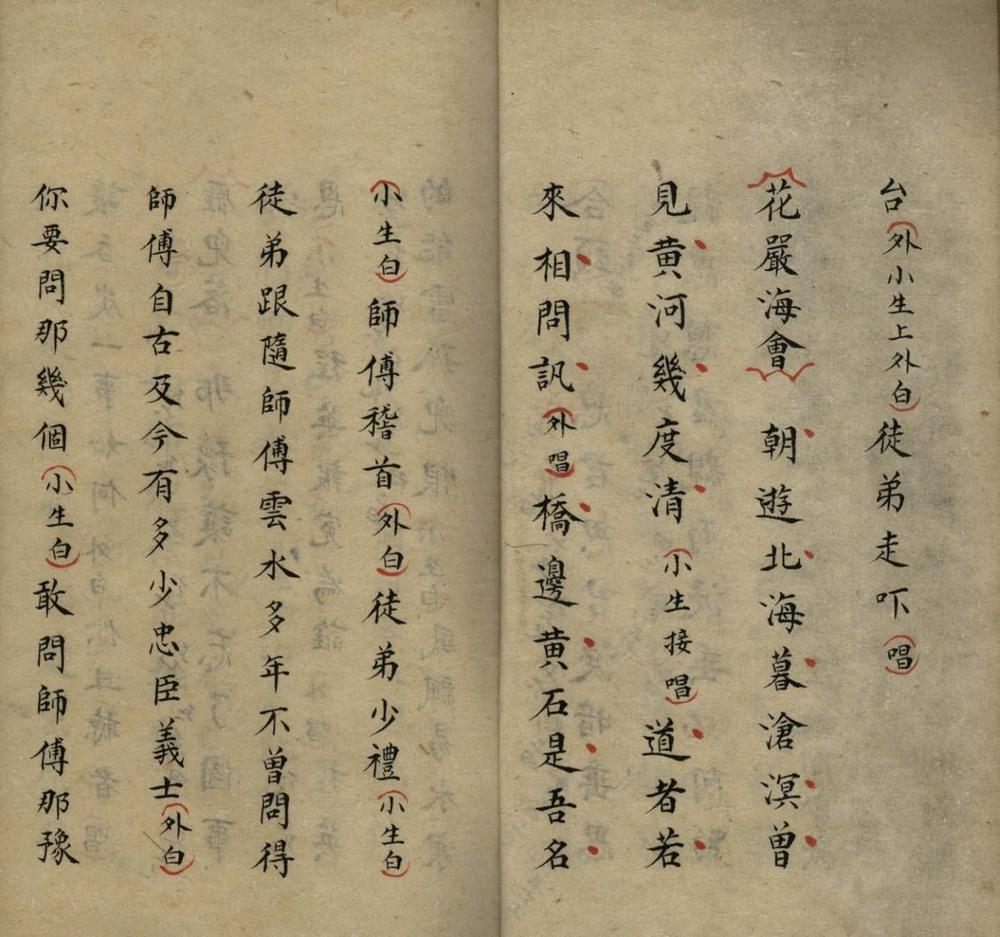 台外小生上外白徒弟走吓唱
花嚴海會朝遊北海暮滄溟曾
見黄河幾度清小生接唱道者若
來相問訊外唱橋邊黄石是吾名
小生白師傅稽首外白徒弟少禮小生白
徒弟跟隨師傅雲水多年不曾問得
師傅自古及今有多少忠臣義士外白
你要問那幾個小生白敢問師傅那豫